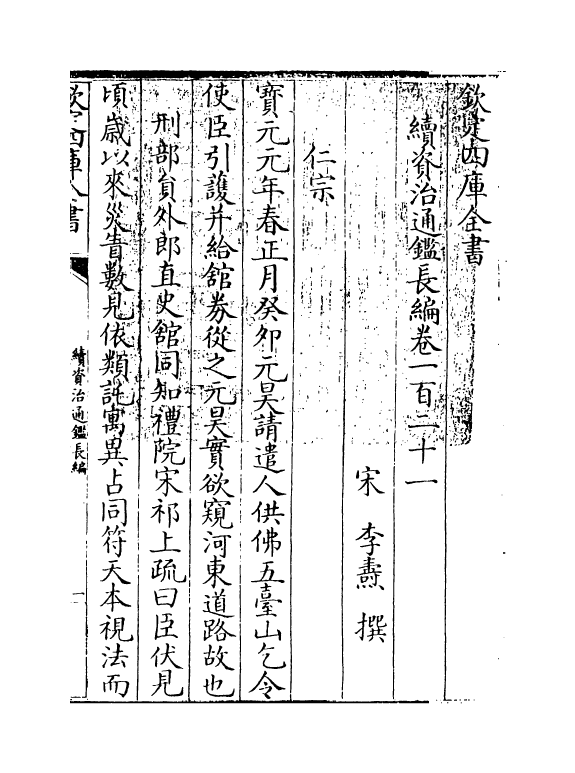 欽定四庫全書
續資治通鑑長編卷一百二十一
宋 李燾 撰
仁宗
寳元元年春正月癸卯元昊請遣人供佛五臺山乞令
使臣引護并給舘券從之元昊實欲窺河東道路故也
刑部員外郎直史館同知禮院宋祁上疏曰臣伏見
頃歲以來災眚數見依類託寓異占同符天本視法而
欽定四庫全書
續資治通鑑長編
一